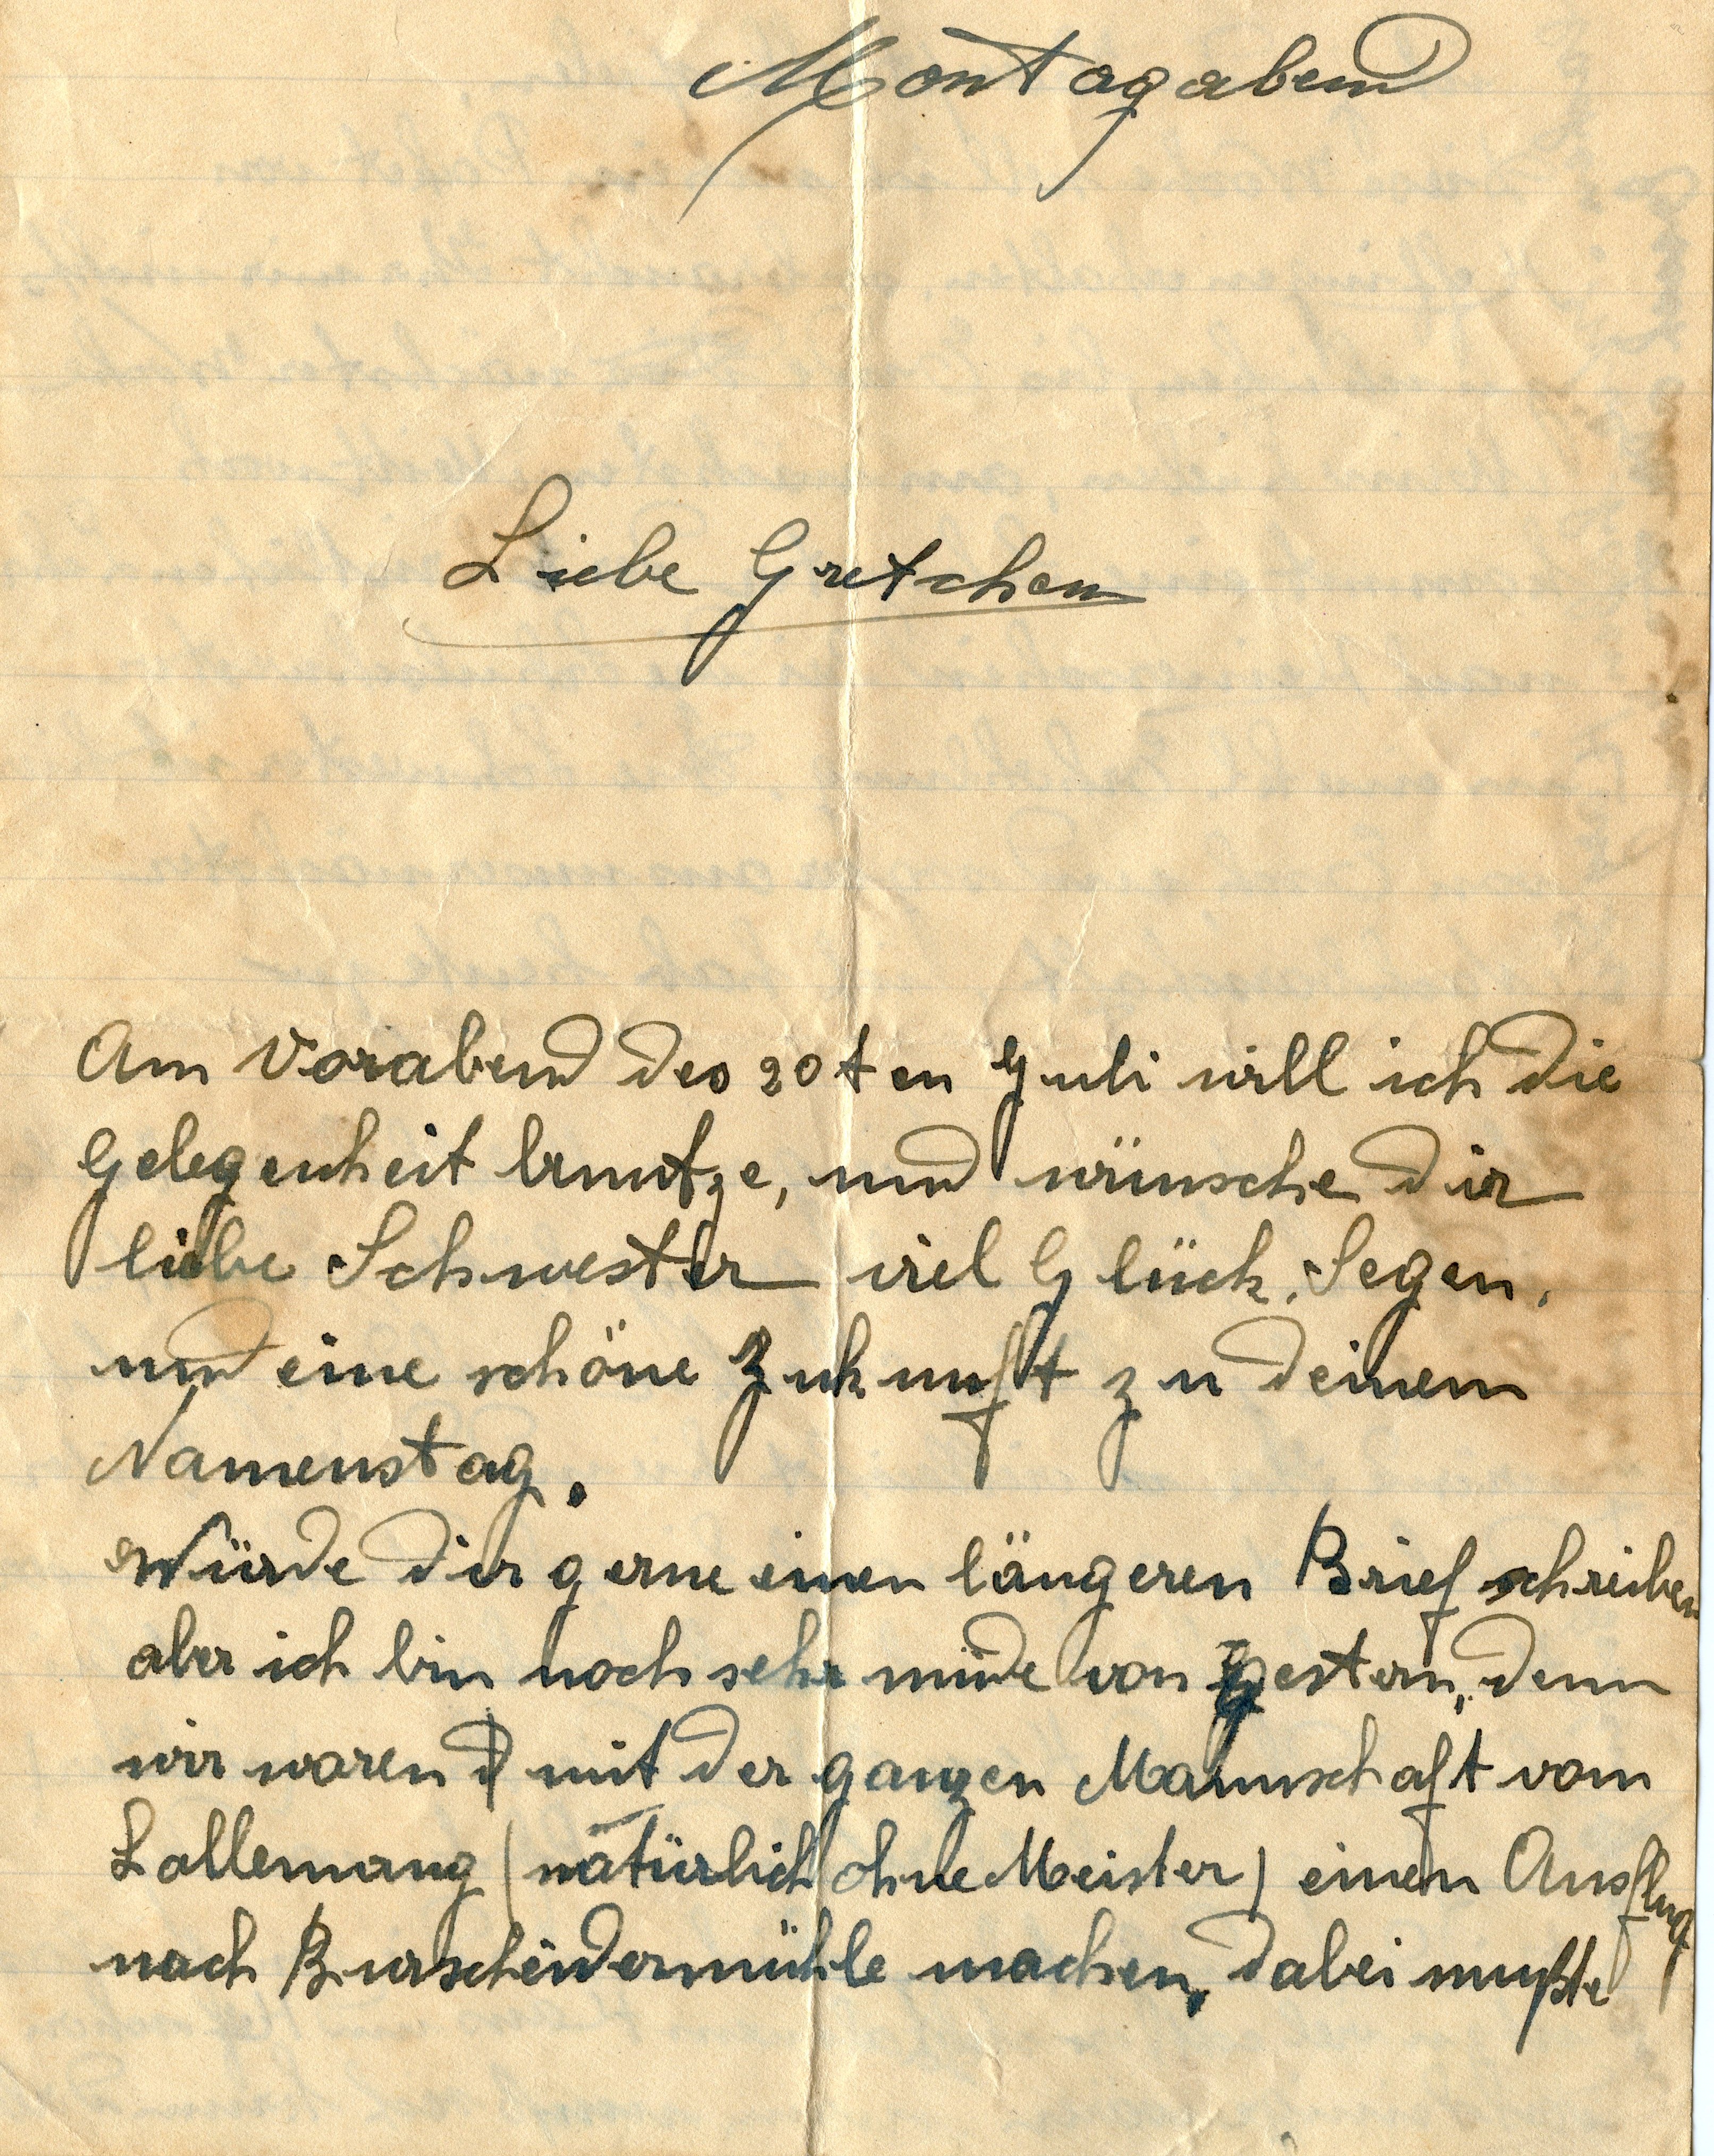 Montagabend
Liebe Gretchen
Am Vorabend des 20ten Juli will ich die
Gelegenheit benutze, und wünsche dir
liebe Schwester viel Glück, Segen,
und eine schöne Zukunft zu deinem
Namenstag.
Würde dir gerne einen längeren Brief schreiben
aber ich bin noch sehr müde von gestern, denn
wir waren mit der ganzen Mannschaft vom
Lallemang (natürlich ohne Meister) einen Ausflug
nach Burscheidermühle machen, dabei mußte